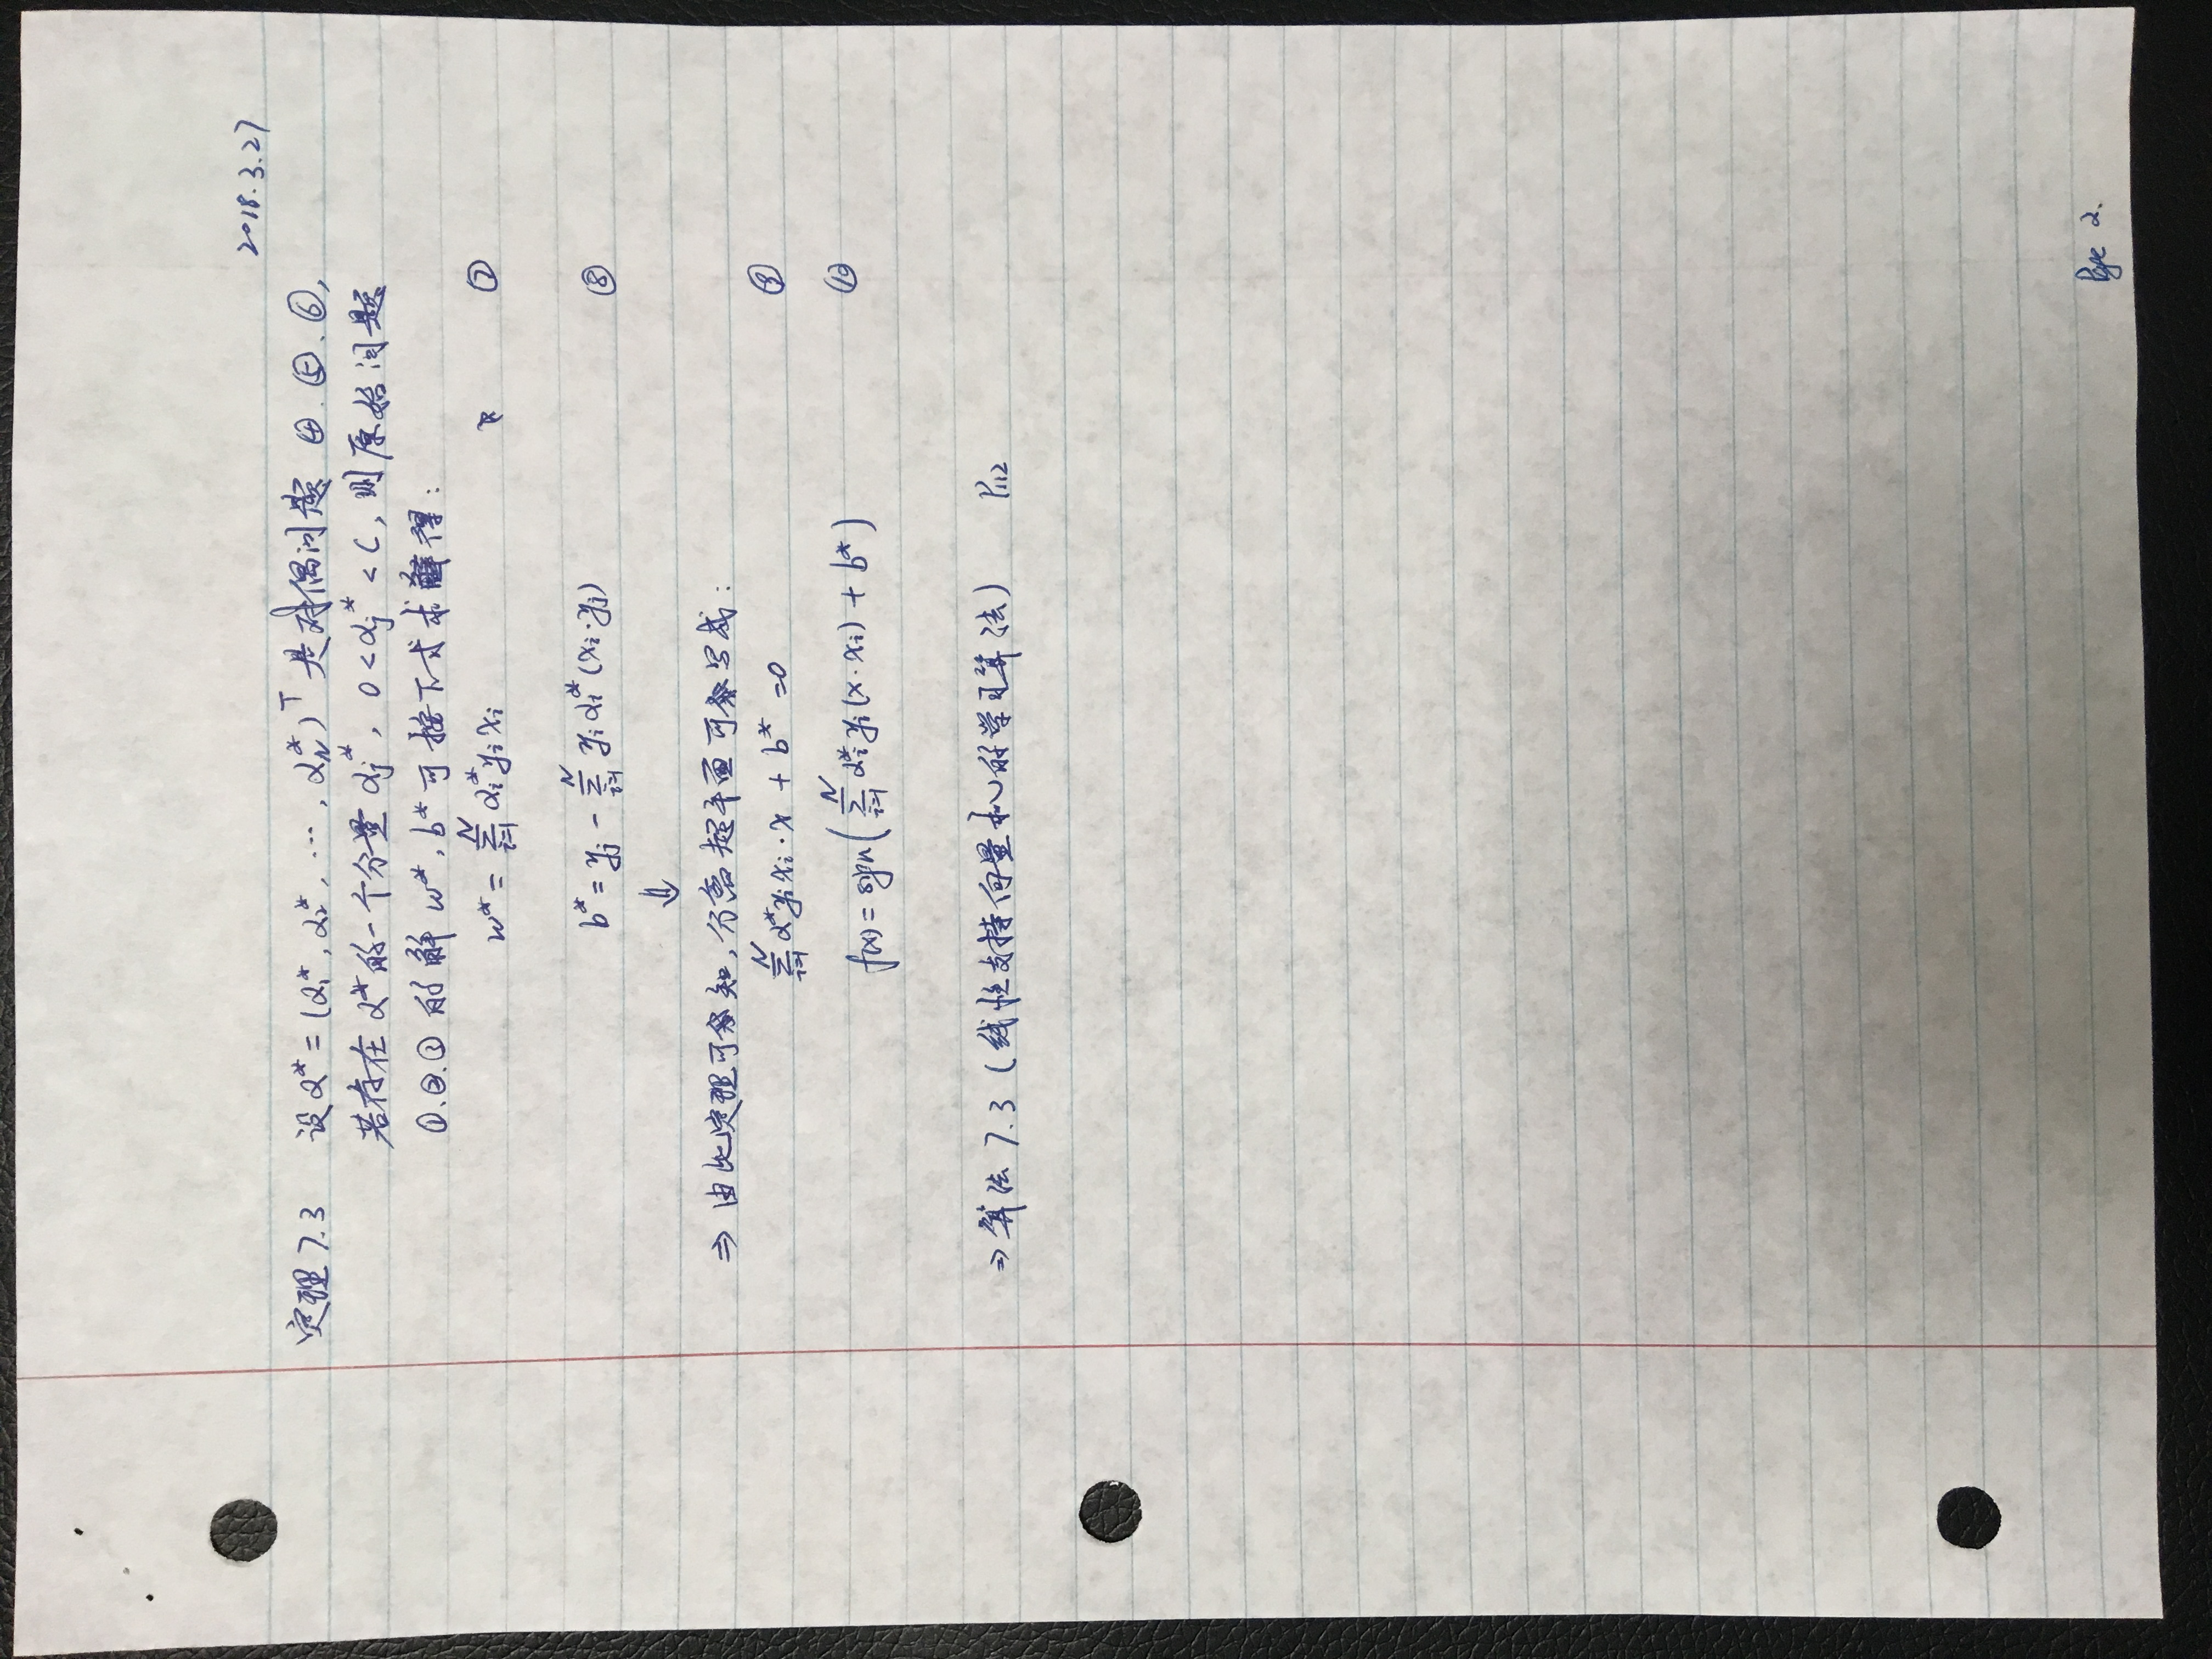 2018.3.27
定理 7.3 设 α* = (α₁*, α₂*, ..., α_N*)ᵀ 是对偶问题 ④.⑤.⑥,
若存在 α* 的一个分量 αⱼ*, 0 < αⱼ* < C, 则原始问题
①.②.③ 的解 w*, b* 可按下式求得:
w* = Σ_{i=1}^{N} αᵢ* yᵢ xᵢ ⑦
b* = yⱼ - Σ_{i=1}^{N} yᵢ αᵢ* (xᵢ·yⱼ) ⑧
⇓
⇒ 由此定理可知, 分离超平面可写成:
Σ_{i=1}^{N} αᵢ* yᵢ xᵢ · x + b* = 0 ⑨
f(x) = sgn( Σ_{i=1}^{N} αᵢ* yᵢ (x·xᵢ) + b* ) ⑩
⇒ 算法 7.3 (线性支持向量机的学习算法) P112
Page 2.